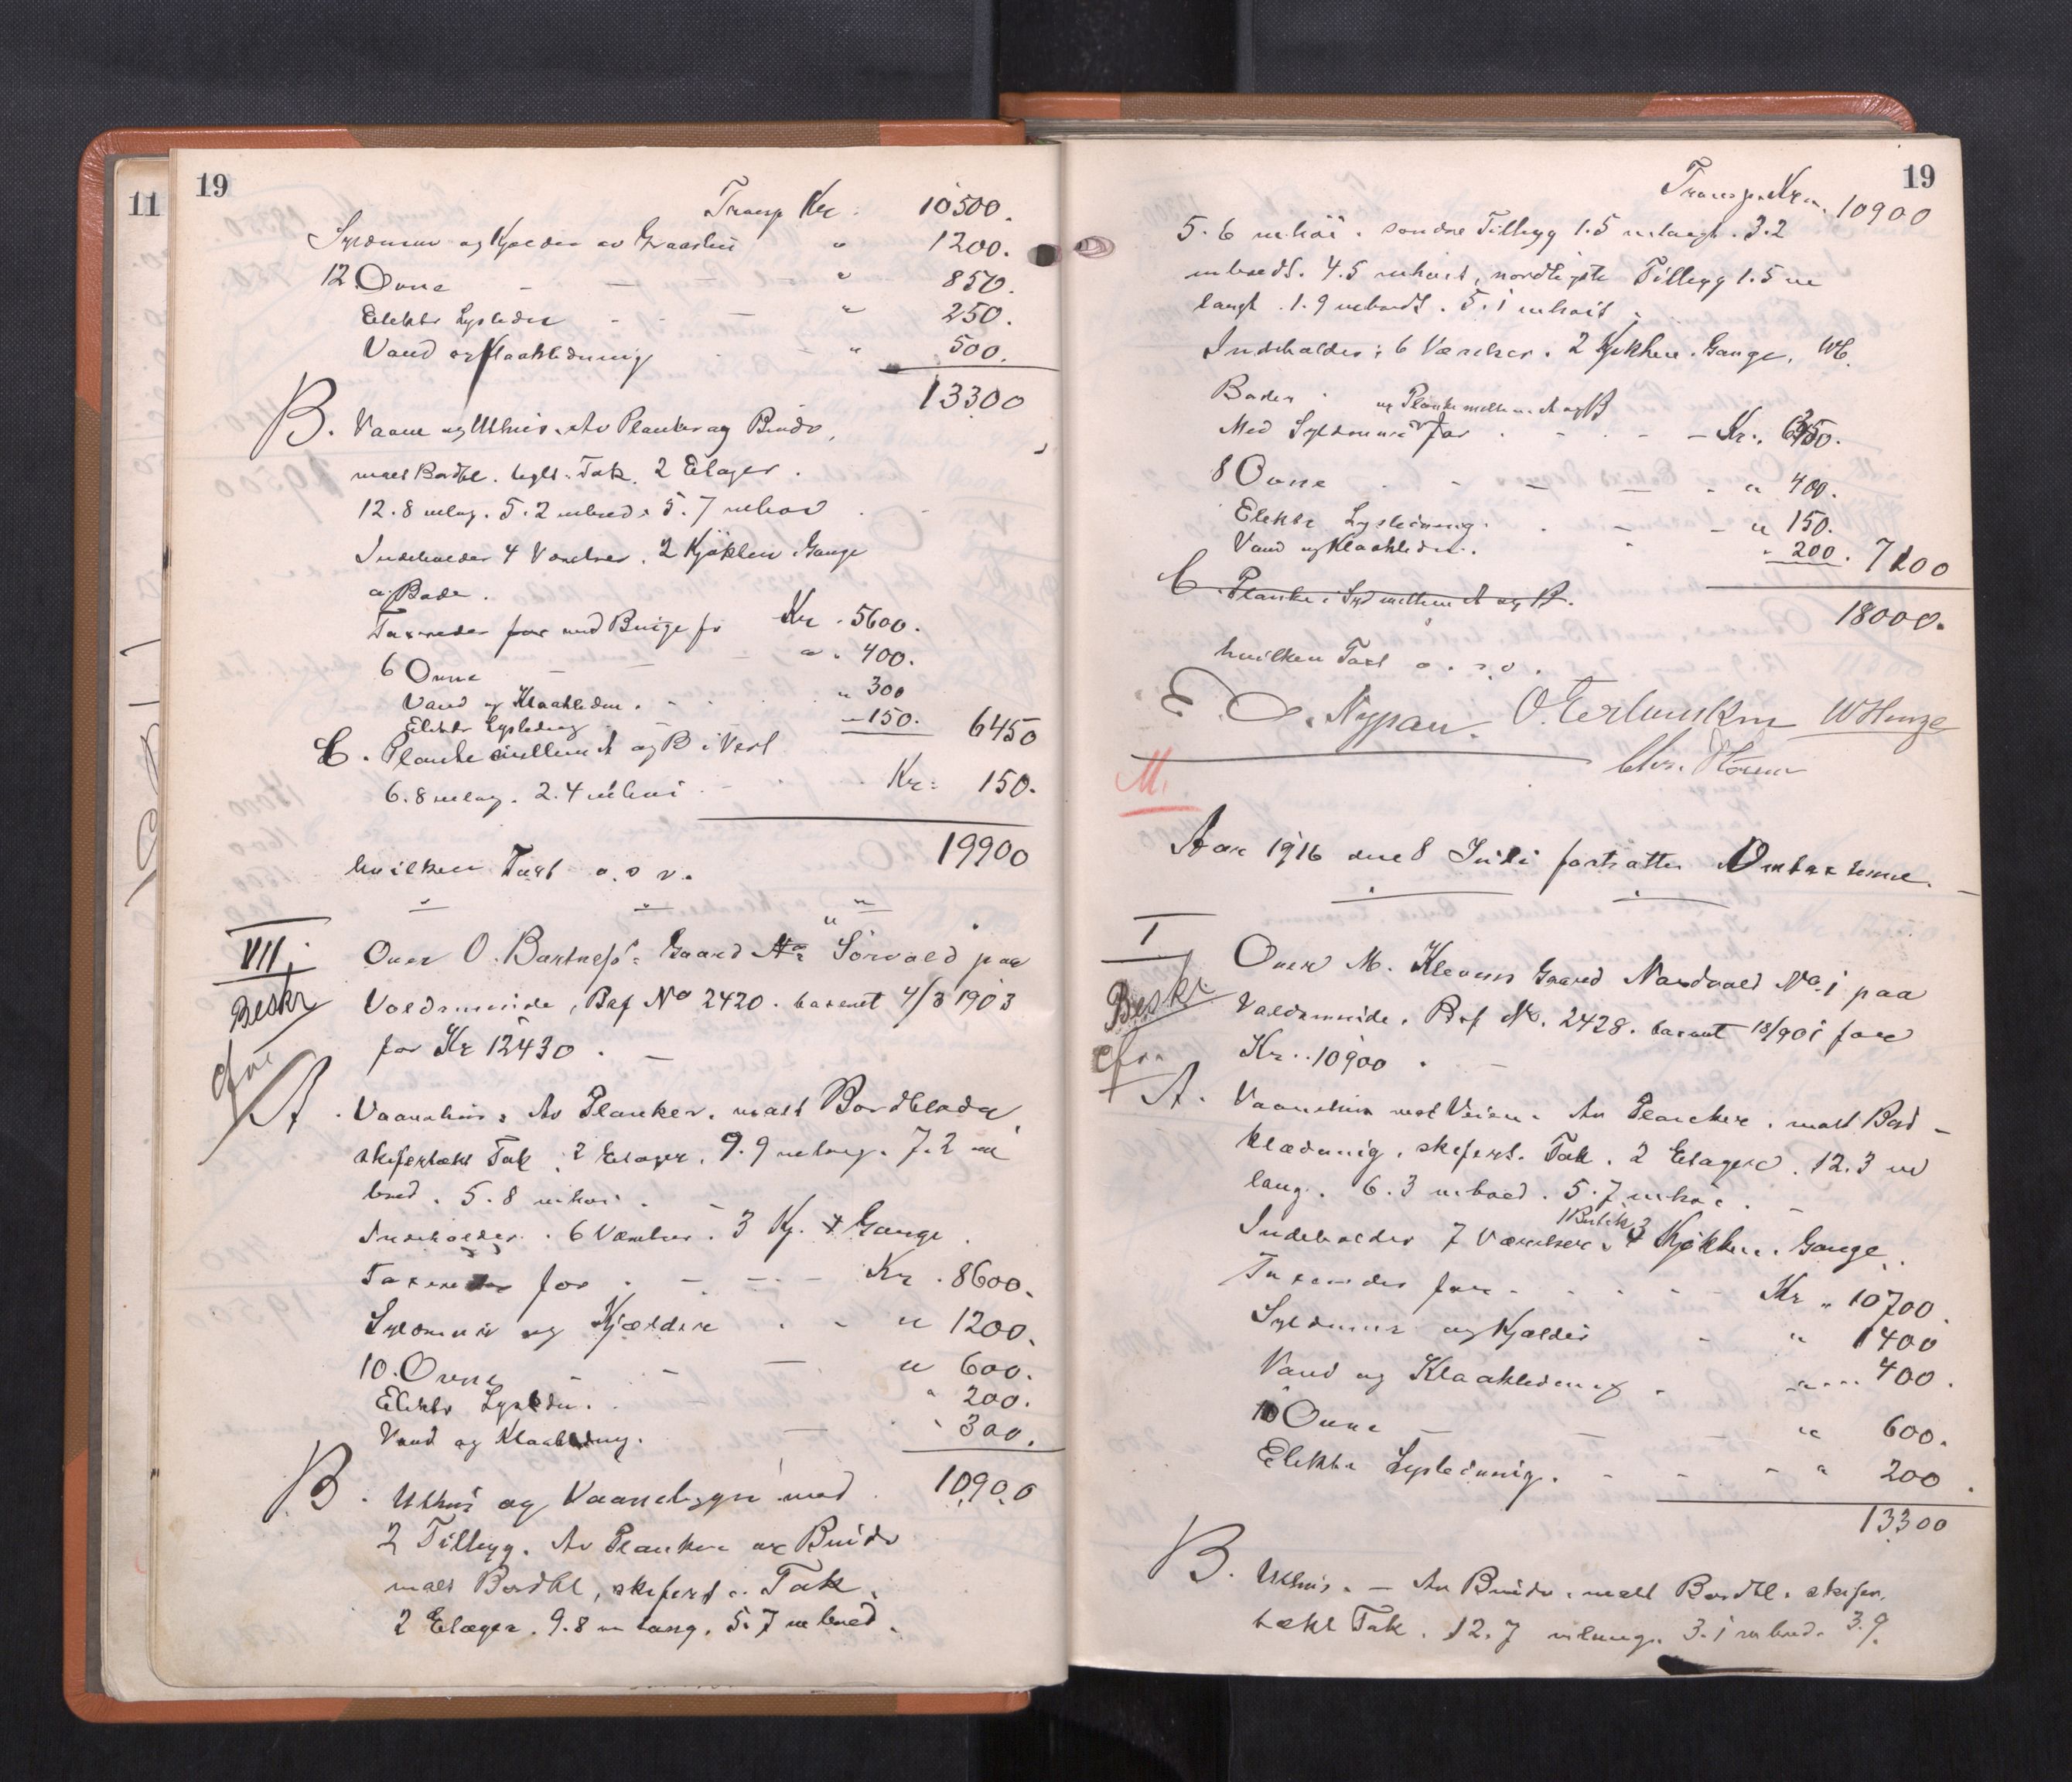 11
19
Transp Kr. 10500.
Syldmur og Kjelder av Graasten " 1200.
12 Ovne - - " 850.
Elektr Lysleden - - - " 250.
Vand og Kloakledning " 500.
13300
B. Vaane og Uthus. Av Planker og Bindv,
malt Bordkl. teglt. Tak. 2 Etager.
12.8 m lag. 5.2 m bred. 5.7 m høi
Indeholder 4 Værelser. 2 Kjøkken. Gange
og Boder.
Taxeredes for Kr. 5600.
6 Ovne - - - " 400.
Vand og Kloakleden. " 300
Elektr Lysledng - - - 150. 6450
C. Planke mellem A og B i Vest
6.8 m lag. 2.4 m høi Kr: 150.
19900
hvilken Taxt o.s.v.
VII.
Beskr
Over O. Bartness' Gaard "Sorvold" paa
Voldsminde, Brf No 2420. taxeret 4/3 1903
for Kr 12430. -
A. Vaanehus. Av Planker. malt Bordklædn,
skifertækt Tak. 2 Etager. 9.9 m lang. 7.2 m
bred. 5.8 m høi. -
Indeholder. 6 Værelser. 3 Kj. + Gange.
Taxeredes for - - - Kr. 8600.
Syldmur og Kjælder - " 1200.
10. Ovne - - - " 600.
Elektr Lysledn. " 200.
Vand og Kloakledning. - " 300.
10900
B. Uthus og Vaanebygn med
2 Tillegg. Av Planker og Bindv
malt Bordkl, skifert. Tak.
2 Etager. 9.8 m lang. 5.7 m bred.
19
Transp. Kr. 10900
5.6 m høi. søndre Tillegg 1.5 m langt. 3.2
m bredt. 4.5 m høit, nordligste Tillegg 1.5 m
langt. 1.9 m bredt. 5.1 m høit.
Indeholder: 6 Værelser. 2 Kjøkken. Gange, WC.
Boder.
og Planke mellem A og B
Med Syldmur for - - - Kr. 6350.
8 Ovne - - - " 400.
Elektr Lysledning. - - " 150.
Vand og Kloakleden. " 200. 7100
C. Planke i Syd mellem A og B.
18000.
hvilken Taxt o.s.v.
E. O. Nypan. O. Terlussem W Hunge
Chr. Thonn
M.
Aar 1916 den 8 Juli fortsattes Omtaxterne. -
I
Beskr
Over M. Klevens Gaard Nordvold No. 1 paa
Voldsminde. Brf No. 2428. taxeret 18/901 for
Kr. 10900. -
A. Vaanehus mot Veien. Av Plancker. malt Bord-
klædning. skifert. Tak. 2 Etager. 12.3 m
lang. 6.3 m bred. 5.7 m høi. -
1 Butik 3
Indeholder 7 Værelser. 4 Kjøkken. Gange.
Taxeredes for - - - Kr. 10700.
Syldmur og Kjælder - " 1400
Vand og Kloakledning - " 400.
10 Ovne - - " 600.
Elektr Lysledning. - - - " 200.
13300
B. Uthus. - Av Bindv. malt Bordkl. skifer.
tækt Tak. 12.7 m lang. 3.1 m bred. 3.9